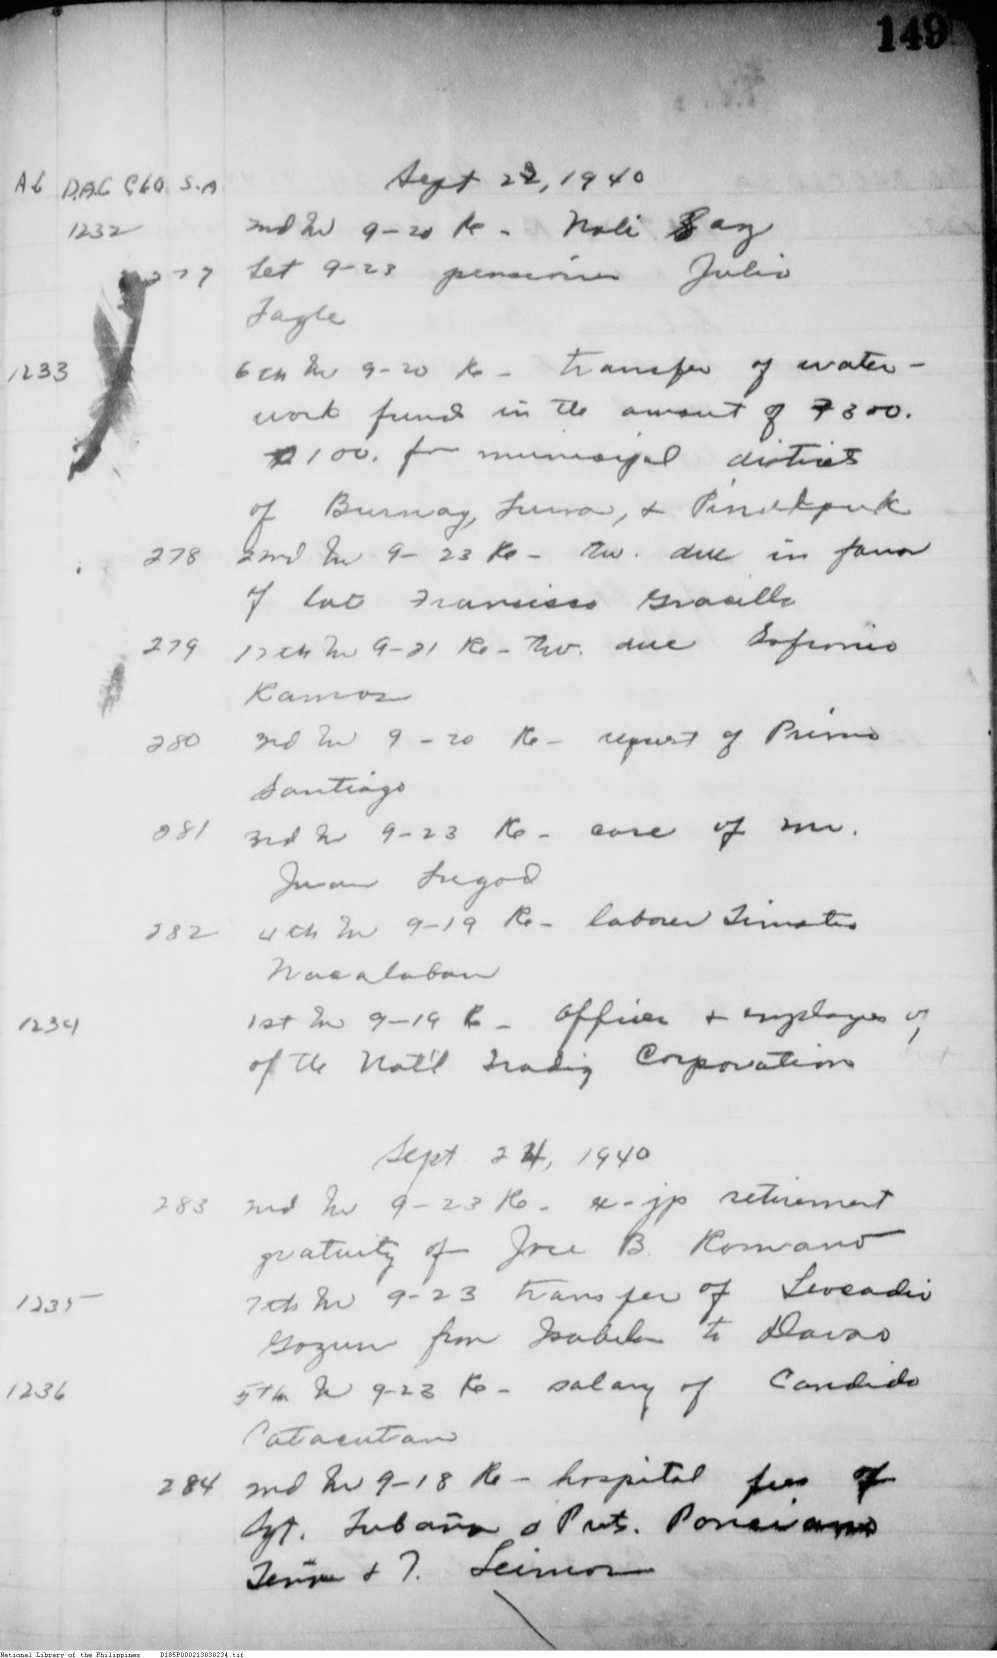 149
A.C. D.A.C. C&O. S.A.
Sept 23, 1940
1232 2nd In 9-20 Re - Noli Say
277 Let 9-23 pensioner Julio
Tagle
1233 6th In 9-20 Re - transfer of water-
work funds in the amount of ₱300.
₱100. for municipal districts
of Burnay, Luna, &
278 2nd In 9-23 Re - Tw. due in favor
of late Francisco Gracilla
279 17th In 9-21 Re - Tw. due Sofronio
Ramos
280 3rd In 9-20 Re - request of Primo
Santiago
281 3rd In 9-23 Re - case of Mr.
Juan Lugod
282 4th In 9-19 Re - laborer Timoteo
Nacalaban
1234 1st In 9-19 Re - Officer & employees of
of the Nat'l Trading Corporation
Sept 24, 1940
283 2nd In 9-23 Re - x-jp retirement
gratuity of Jose B. Romano
1235 7th In 9-23 transfer of Leocadio
Gozun from Isabela to Davao
1236 5th In 9-23 Re - salary of Candido
Catacutan
284 2nd In 9-18 Re - hospital fees of
Sgt. & Pvts. Ponciano
& T.
National Library of the Philippines D185P000213830234.tif